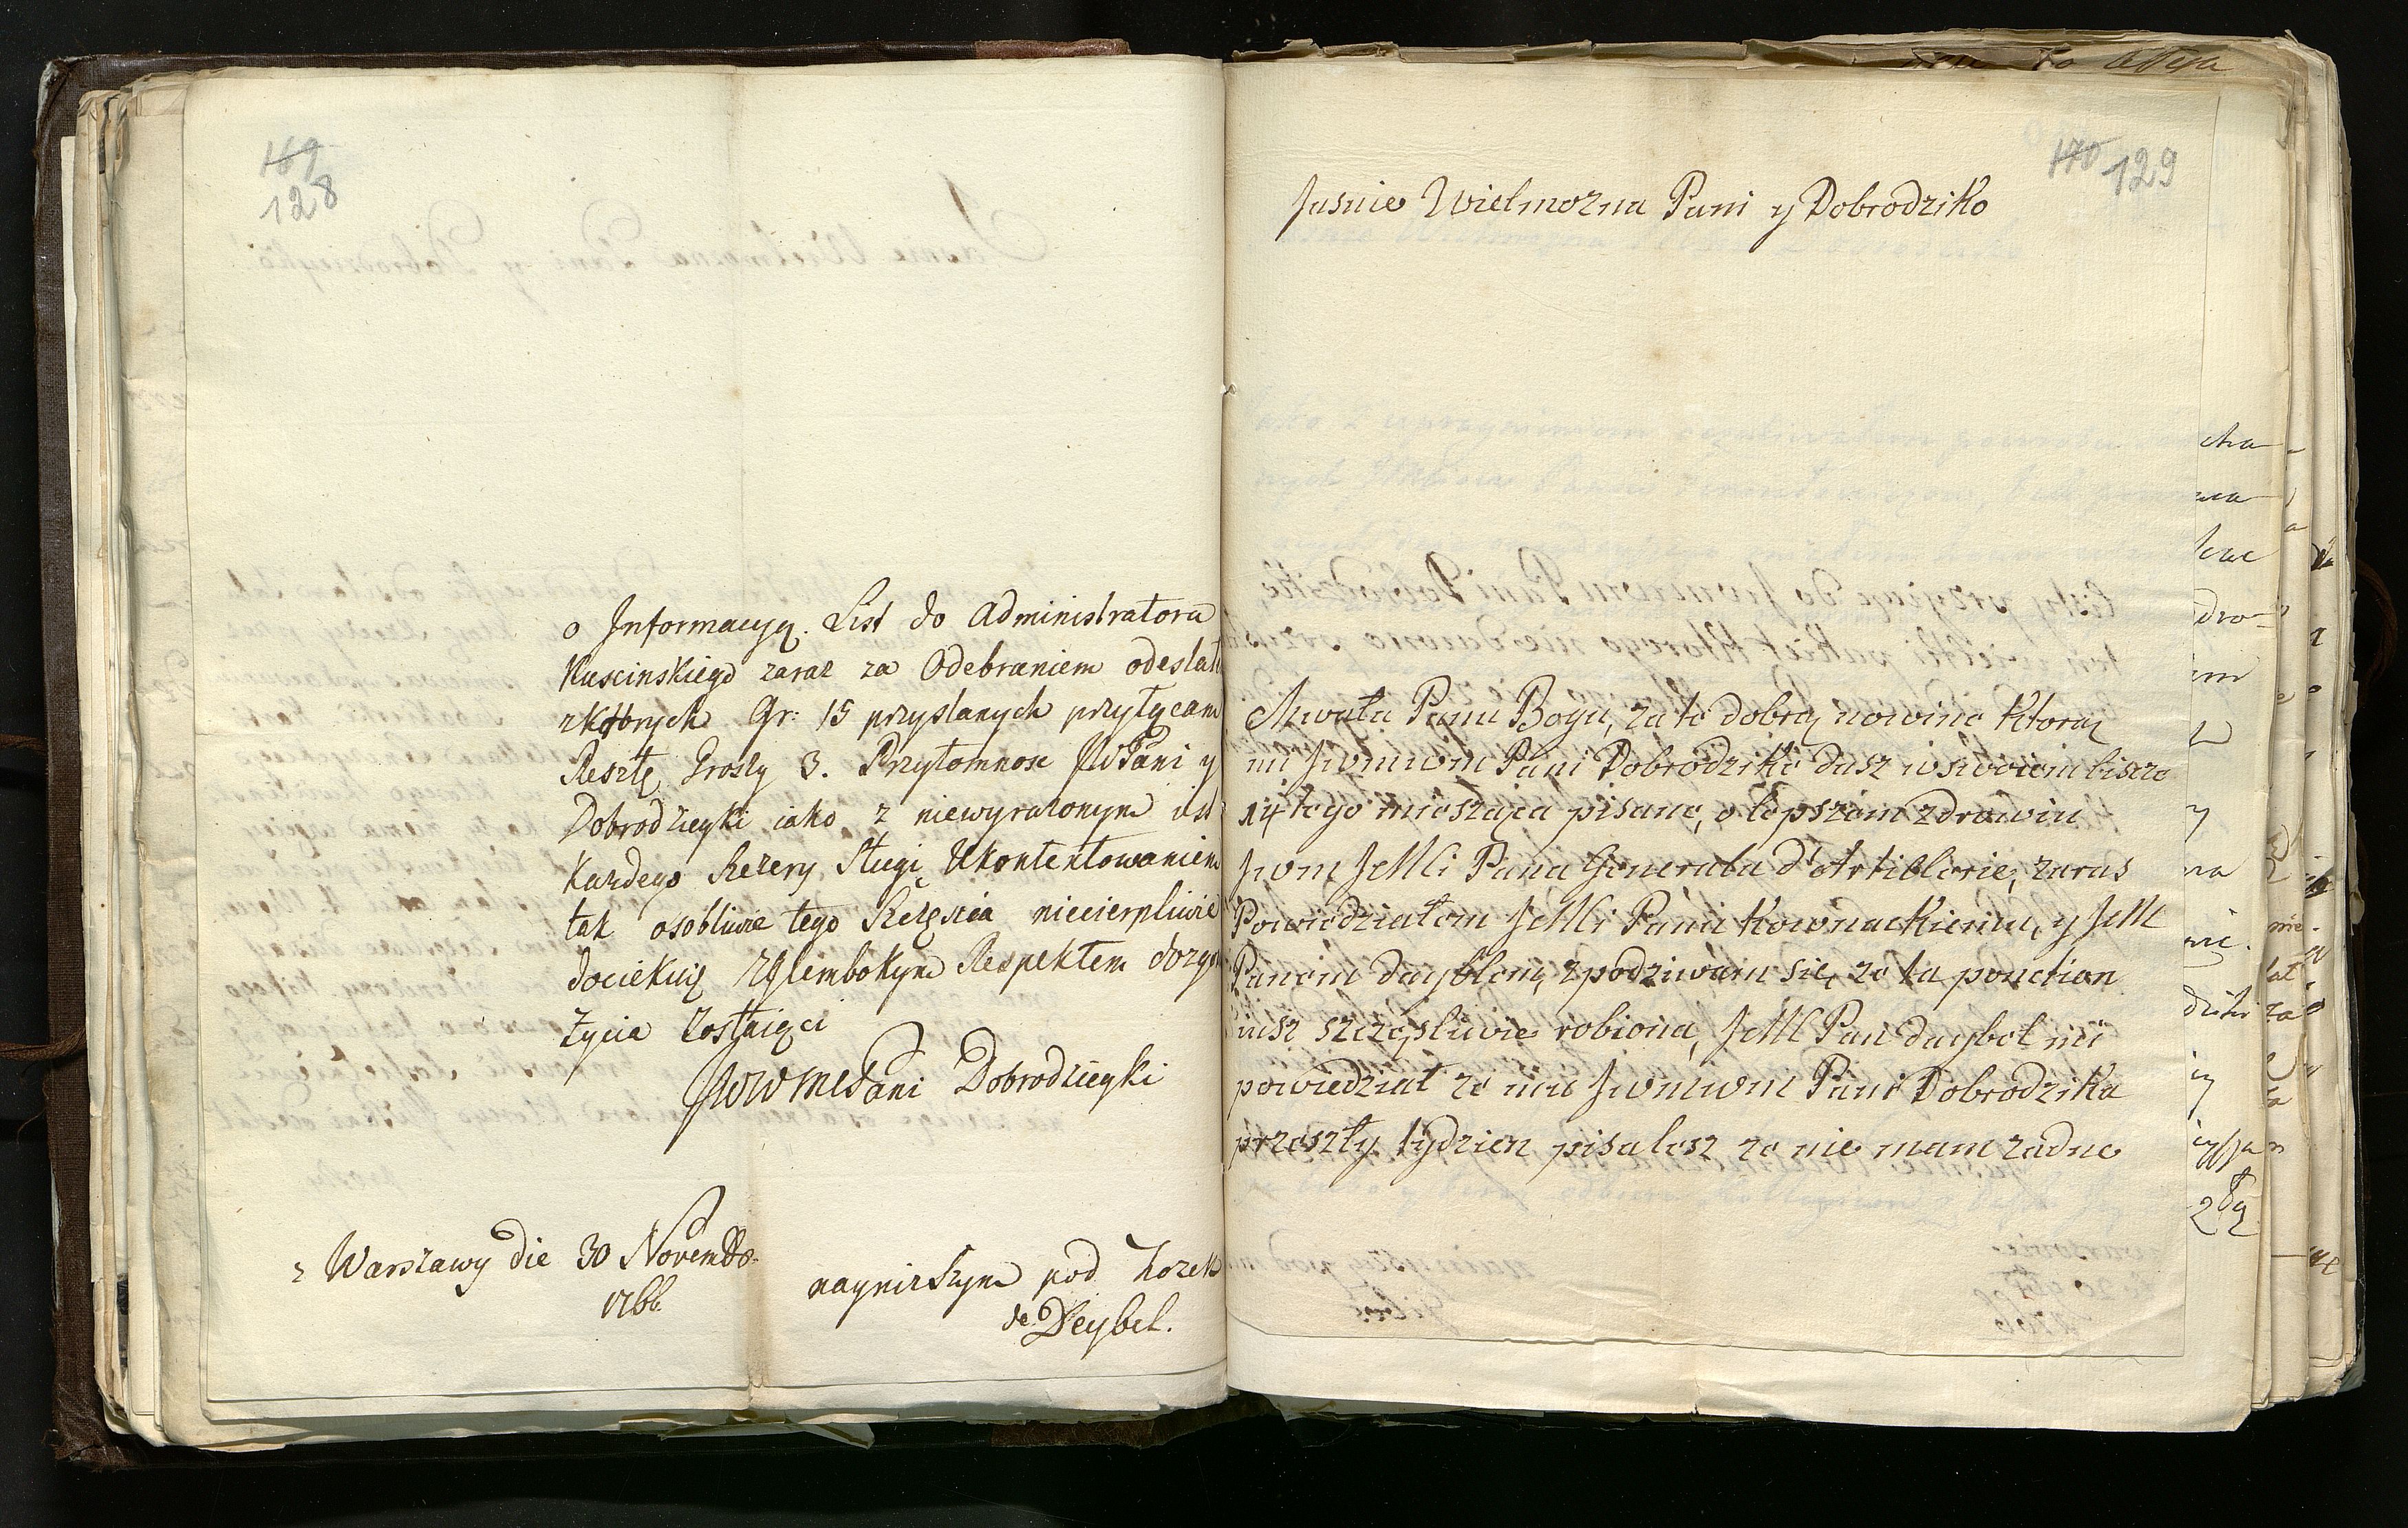 169
128
o Informacyą. List do Administratora
Kuscinskiego zaraz za Odebraniem odeslał
zktorych Gr: 15 przysłanych przyłączam
Resztę Groszy 3. Przytomnosc JWPani y
Dobrodzieyki iako z niewyrazonym iest
Kazdego Szczery Sługi Ukontentowaniem
tak osobliwie tego Szczęscia niecierpliwie
dociekuię zGlembokym Respektem dozgo
Zycia Zostaiąci
JWWMPani Dobrodzieyki
z Warszawy die 30 Novembr.
1766
nayniższym pod
de Deybel.
170 129
Jasnie Wielmozna Pani y Dobrodziko
Chwała Panu Bogu, za to dobrą nowine ktorą
mi Jwmwm Pani Dobrodzike dasz wswoiem liscze
14 tego miesząca pisane, o lepszem zdrowiu
Jwm JMCi Pana Generala d'Artiblerie, zaras
Powiedziałem JMCi Pania Kownackieniu, y JMC
Paneim dayblem, zpodziwam się, ze ta ponction
iusz szczęsliwie robiona, JMC Pan daybel mi
powiedział ze mu Jwmwm Pani Dobrodzika
przeszły tydzien pisalesz ze nie mam zadne